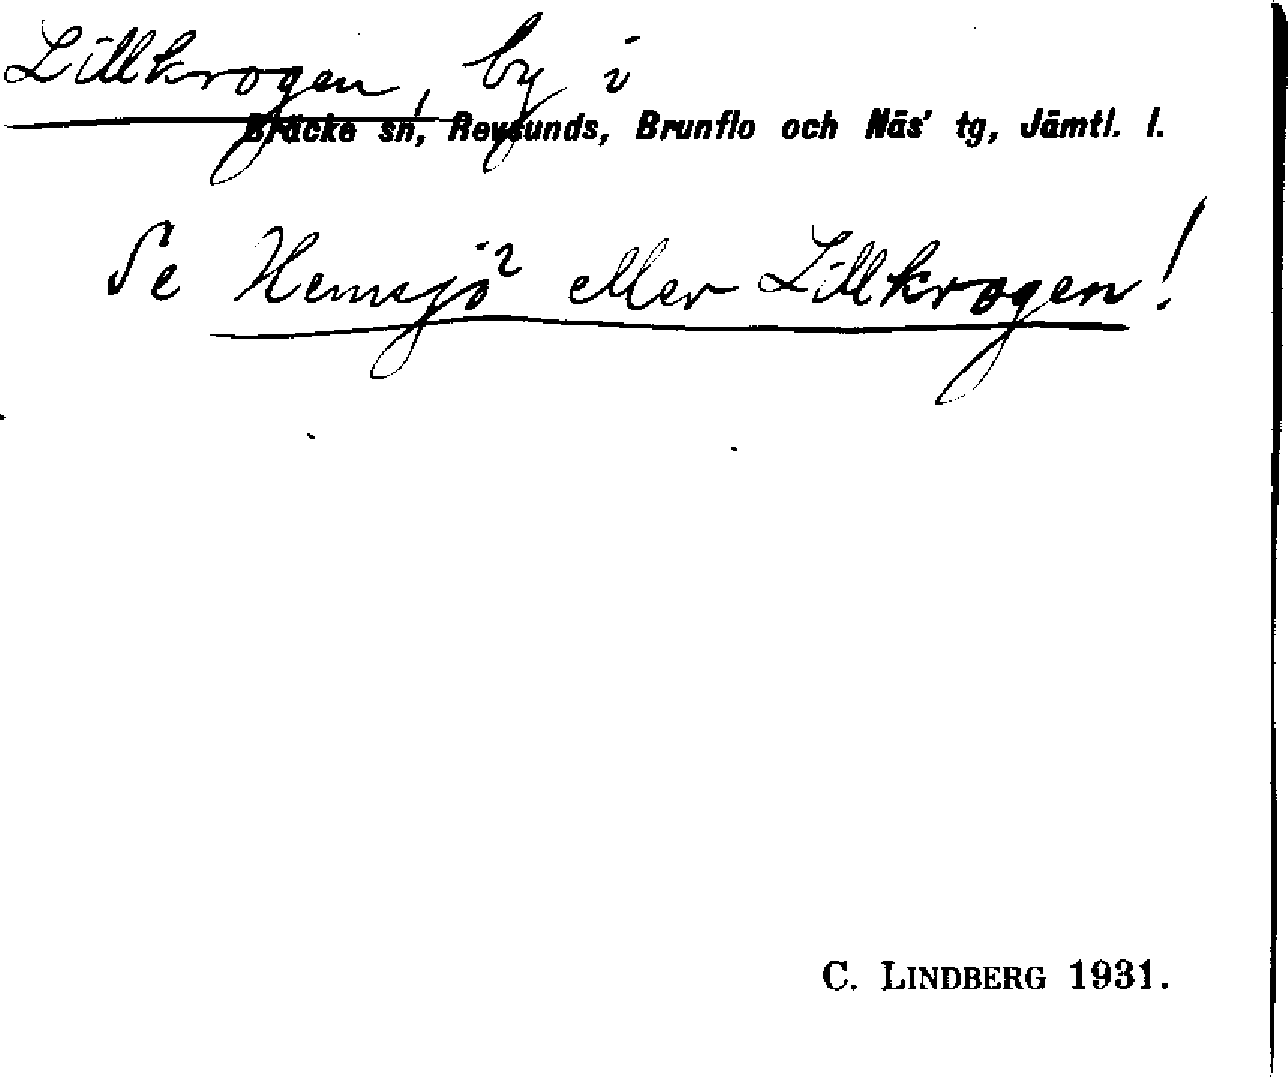 Lillkrogen, by i
Bräcke sn, Revsunds, Brunflo och Näs' tg, Jämtl. l.
Se Hemsjö eller Lillkrogen!
C. LINDBERG 1931.